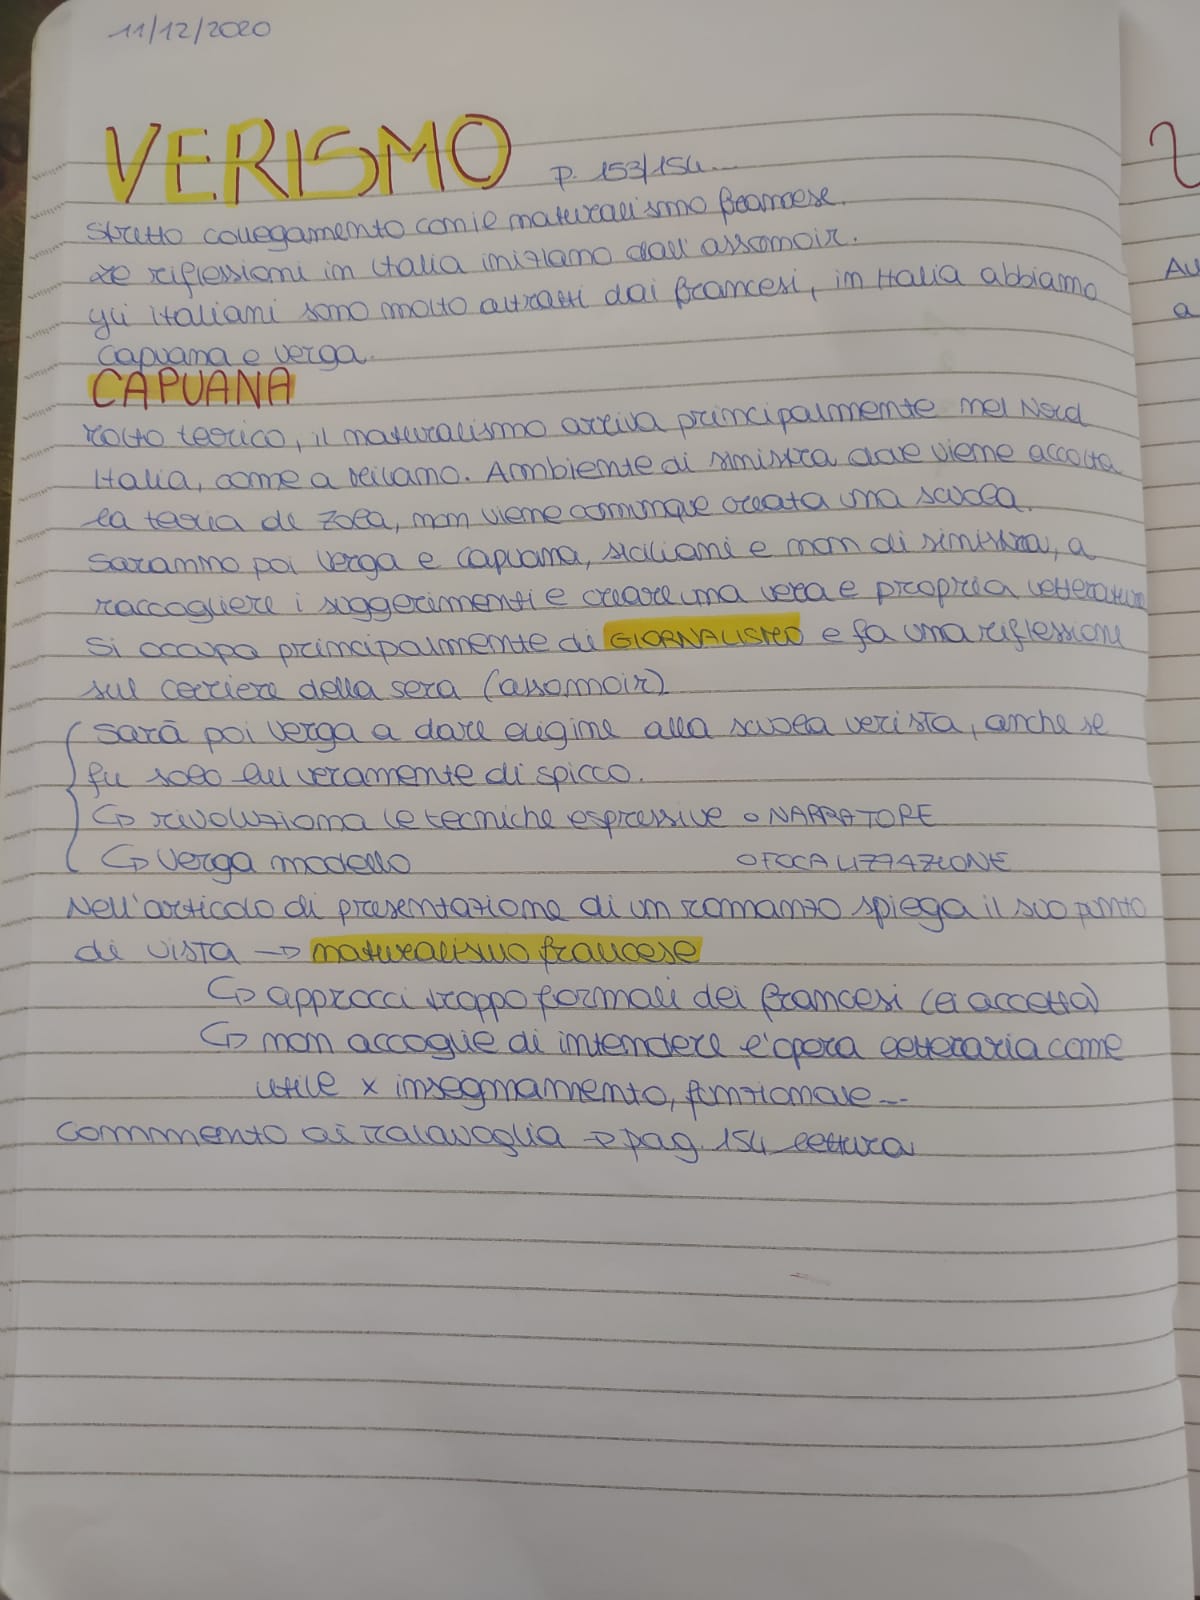 11/12/2020
VERISMO p. 153/154...
Stretto collegamento con il naturalismo francese.
Le riflessioni in Italia iniziano dall'assomoir.
gli italiani sono molto attratti dai francesi, in Italia abbiamo
Capuana e Verga.
CAPUANA
teorico, il naturalismo arriva principalmente nel Nord
Italia, come a Milano. Ambiente di sinistra dove viene accolta
la teoria di Zola, non viene comunque creata una scuola.
Saranno poi Verga e Capuana, siciliani e non di sinistra, a
raccogliere i suggerimenti e creare una vera e propria letteratura
Si occupa principalmente di GIORNALISMO e fa una riflessione
sul corriere della sera (assomoir)
Sarà poi Verga a dare origine alla scuola verista, anche se
fu solo lui veramente di spicco.
↳ rivoluziona le tecniche espressive o NARRATORE
↳ Verga modello o FOCALIZZAZIONE
Nell'articolo di presentazione di un romanzo spiega il suo punto
di vista → naturalismo francese
↳ approcci troppo formali dei francesi (li accetta)
↳ non accoglie di intendere l'opera letteraria come
utile x insegnamento, funzionale...
Commento ai Malavoglia → pag. 154 lettura
Au
a